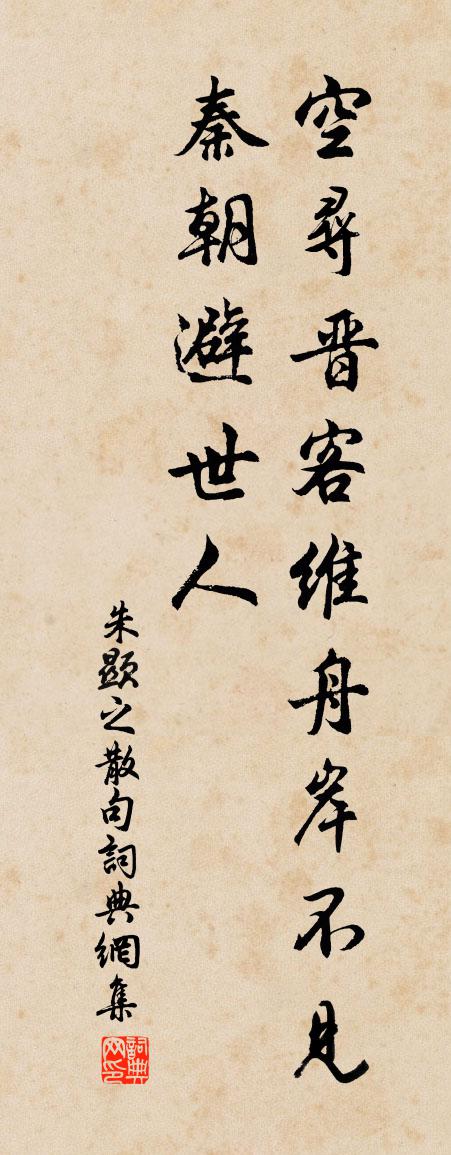 空尋晋客維舟岸不見
秦朝避世人
朱顯之散句詞典網集
詞典网印